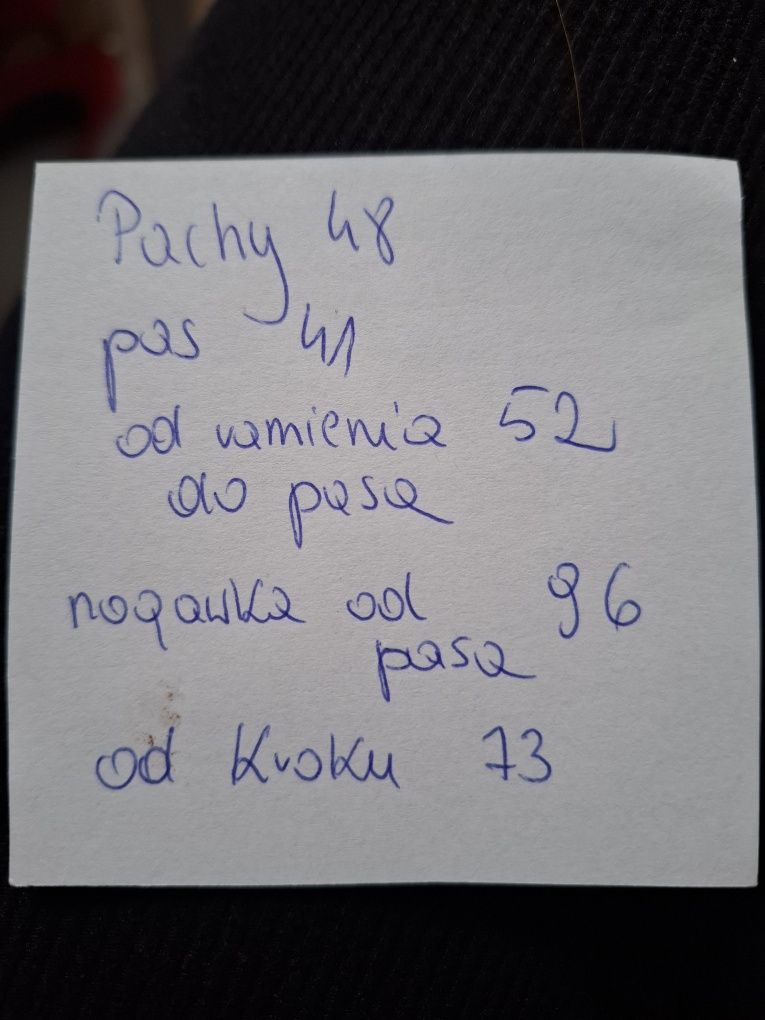 Pachy 48
pas 41
od ramienia 52
do pasa
nogawka od 96
pasa
od kroku 73